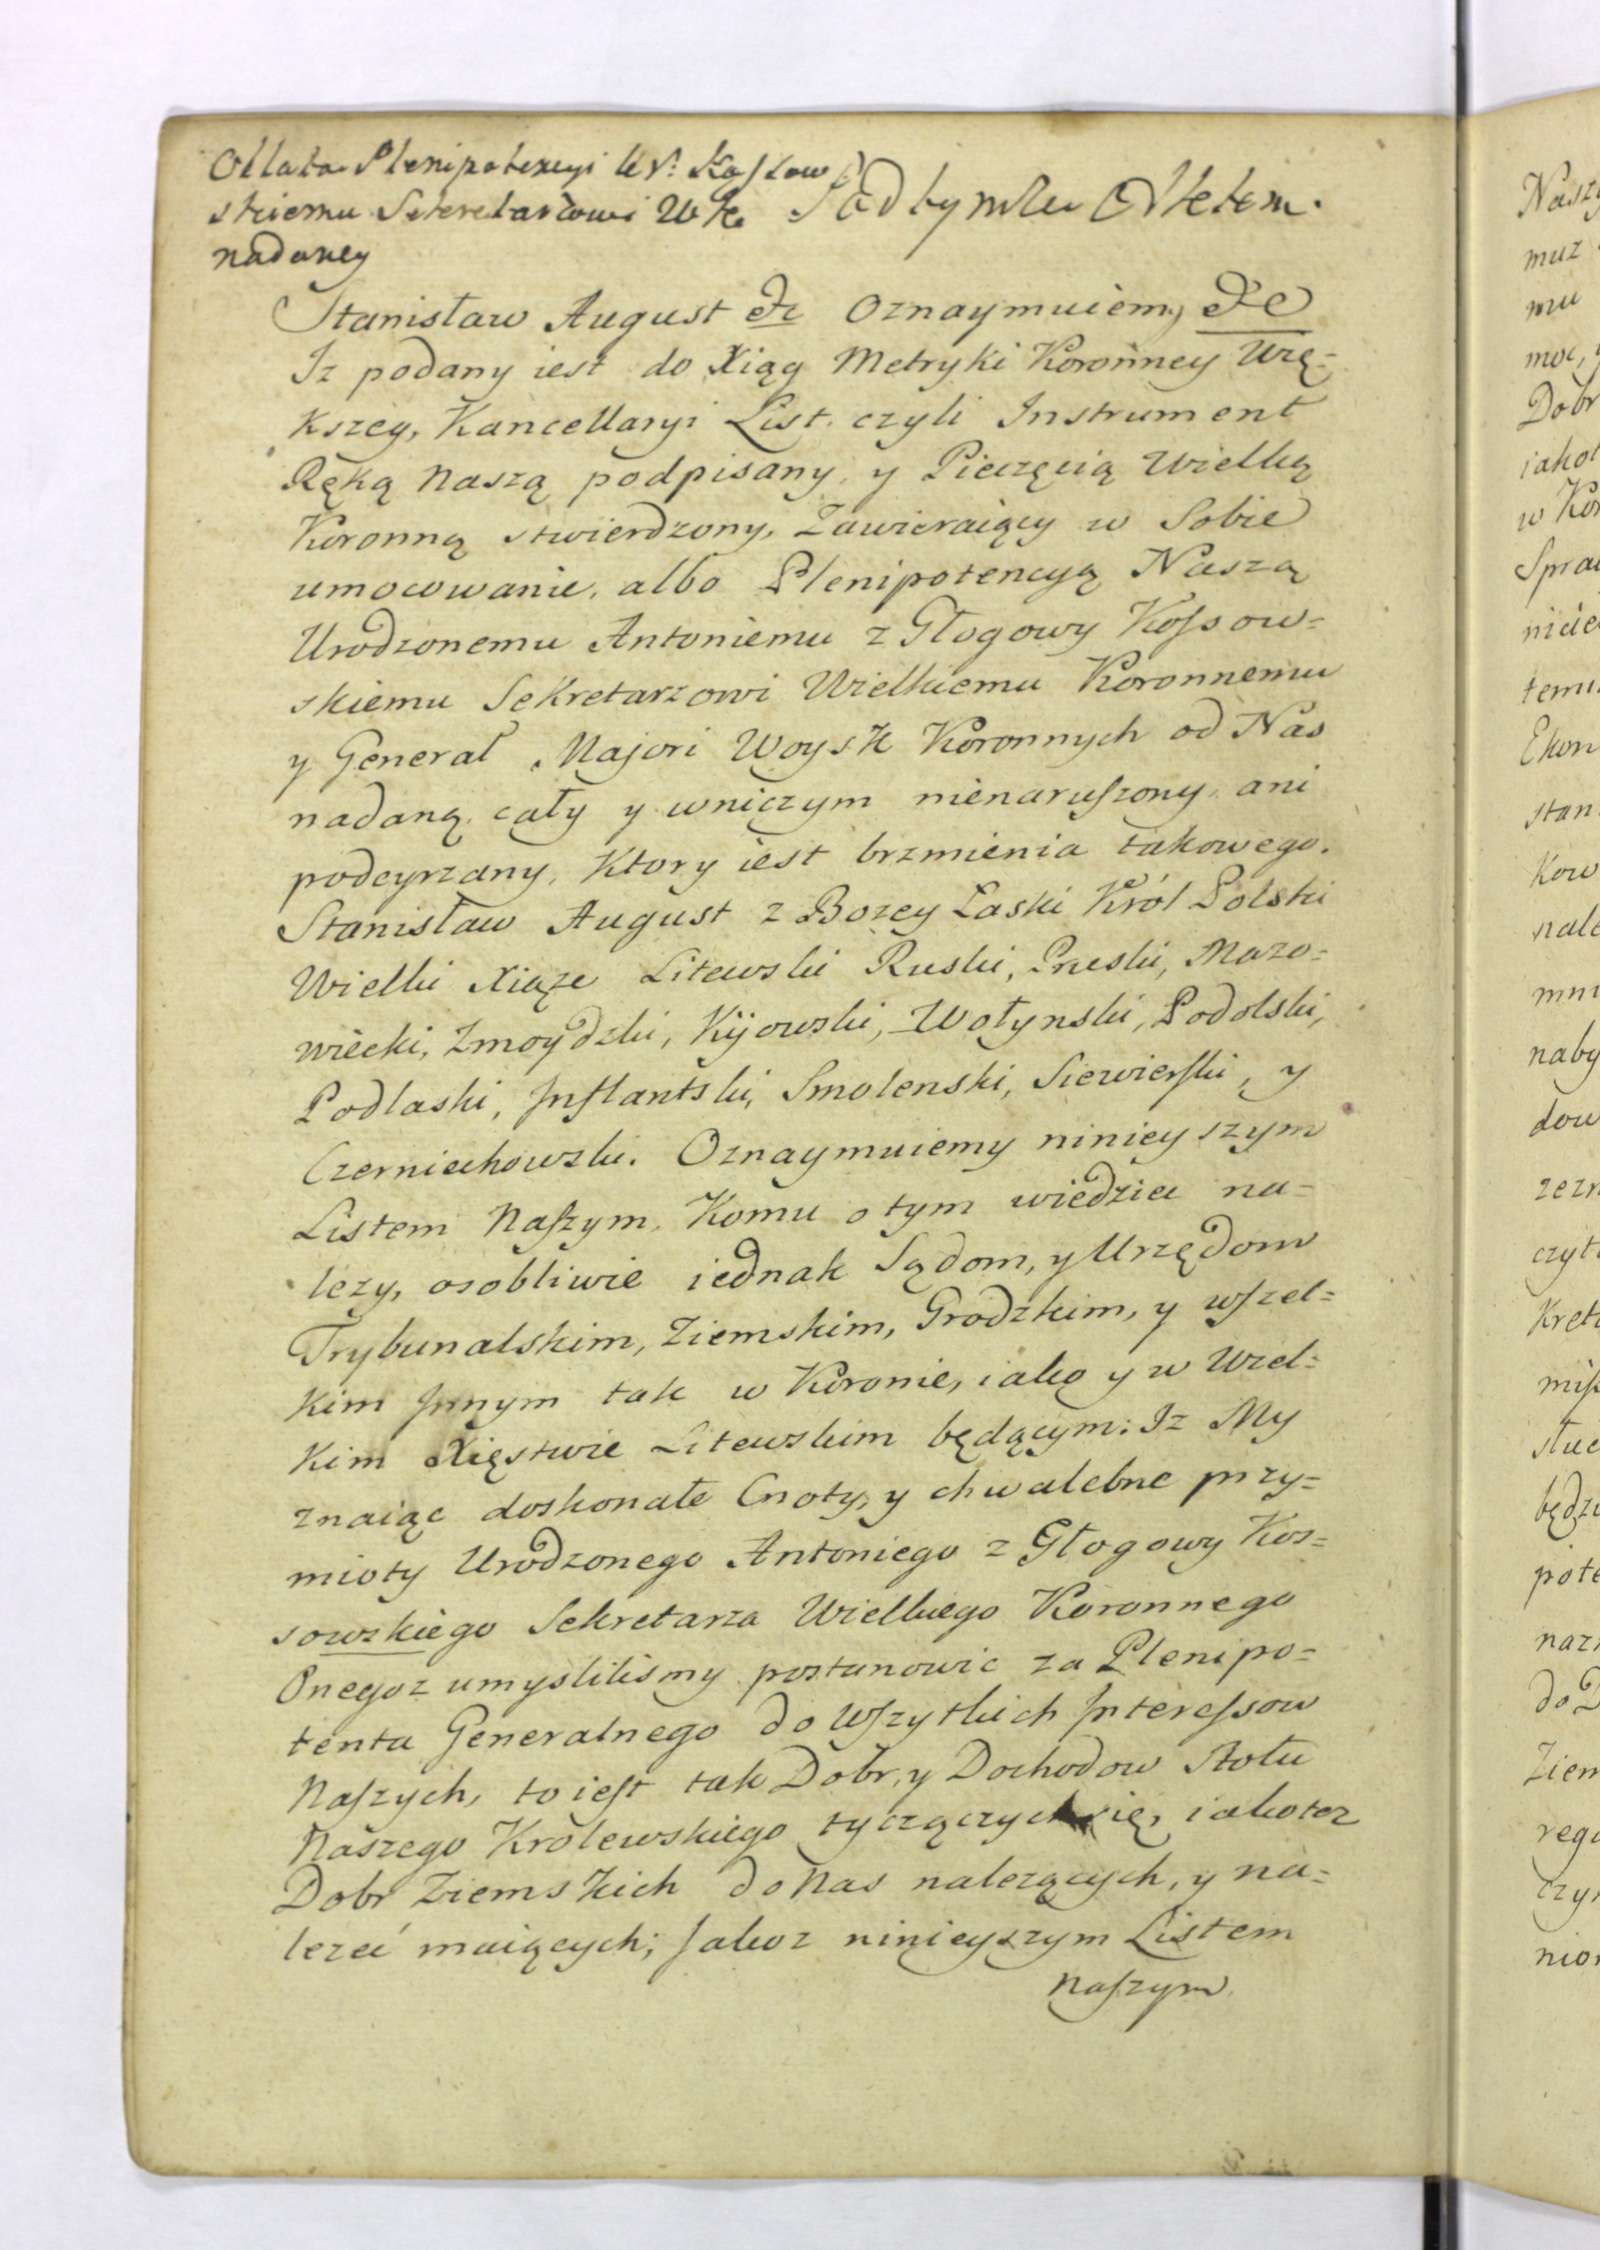 Oblata Plenipotencyi Ur: Kossow
skiemu Sekretarzowi W K
nadaney
Pod tymże Aktem.
Stanisław August &c Oznaymuiemy &c
Iz podany iest do Xiąg Metryki Koronney Wię-
kszey, Kancellaryi List, czyli Instrument
Ręką Naszą podpisany, y Pieczęcią Wielką
Koronną stwierdzony, Zawieraiący w Sobie
umocowanie, albo Plenipotencyą Naszą
Urodzonemu Antoniemu z Głogowy Kossow-
skiemu Sekretarzowi Wielkiemu Koronnemu
y Generał Majori Woysk Koronnych od Nas
nadaną, cały y wniczym nienaruszony, ani
podeyrzany, Ktory iest brzmienia takowego.
Stanisław August z Bozey Łaski Król Polski
Wielki Xiąze Litewski Ruski, Pruski, Mazo-
wiecki, Zmoydzki, Kijowski, Wołynski, Podolski,
Podlaski, Inflantski, Smolenski, Siewierski, y
Czerniechowski. Oznaymuiemy ninieyszym
Listem Naszym, Komu o tym wiedziec na-
lezy, osobliwie iednak Sądom, y Urzędom
Trybunalskim, Ziemskim, Grodzkim, y wszel-
kim Jnnym tak w Koronie, iako y w Wiel-
kim Xięstwie Litewskim będącym: Iz My
znaiąc doskonałe Cnoty, y chwalebne przy-
mioty Urodzonego Antoniego z Głogowy Kos-
sowskiego Sekretarza Wielkiego Koronnego
Onegoz umyslilismy postanowic za Plenipo-
tenta Generalnego do Wszytkich Interessow
Naszych, to iest tak Dobr, y Dochodow Stołu
Naszego Krolewskiego tyczączych się, iakotez
Dobr Ziemskich do Nas nalezących, y na-
lezeć maiących; Jakoz ninieyszym Listem
Naszym